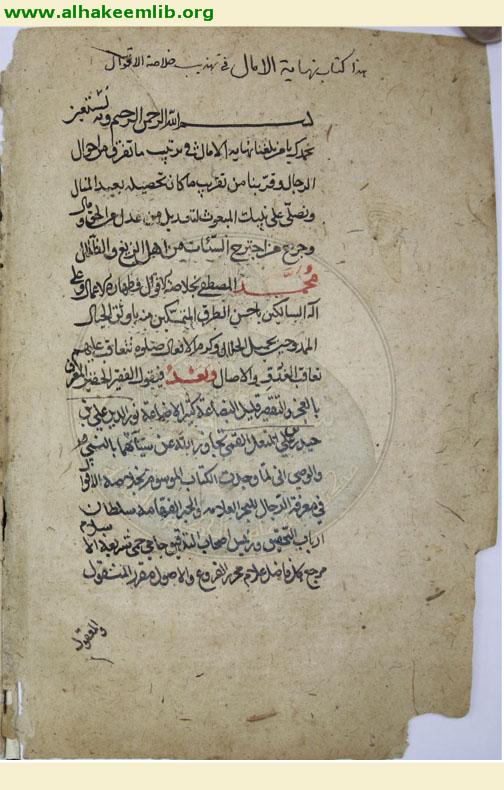 www.alhakeemlib.org
هذا كتاب نهاية الامال فى ترتيب خلاصة الاقوال
بسم الله الرحمن الرحيم وبه نستعين
نحمدك يا من بلغنا نهاية الامال فى ترتيب ما تفرق من احوال
الرجال وقربنا من تقريب ما كان تحصيله بعيد المنال
ونصلى على نبيك المبعوث لتعديل من عدل عن الحق ومال
وجرح من اجترح السيئات من اهل الزيغ والضلال
محمد المصطفى بخلاصة الاقوال وطهارة الاعمال وعلى
آله السالكين باحسن الطرق المتمسكين منه باوثق الحبال
الممدوحين بجميل الخلال وكرم الافعال صلوة تتعاقب عليهم
تعاقب الغدو والاصال وبعد فيقول الفقير الحقير المعترف
بالعجز والتقصير قليل البضاعة كثير الاضاعة نور الدين على بن
حيدر على القمى تجاوز الله عن سيئاتهما بالنبى
والوصى انى لما وجدت الكتاب الموسوم بخلاصة الاقوال
فى معرفة الرجال للبحر العلامه والحبر الفهامة سلطان
ارباب التحقيق ورئيس اصحاب التدقيق حامى حمى شريعة الاسلام
مرجع كل فاضل علام محرر الفروع والاصول مقرر المنقول
والمعقول